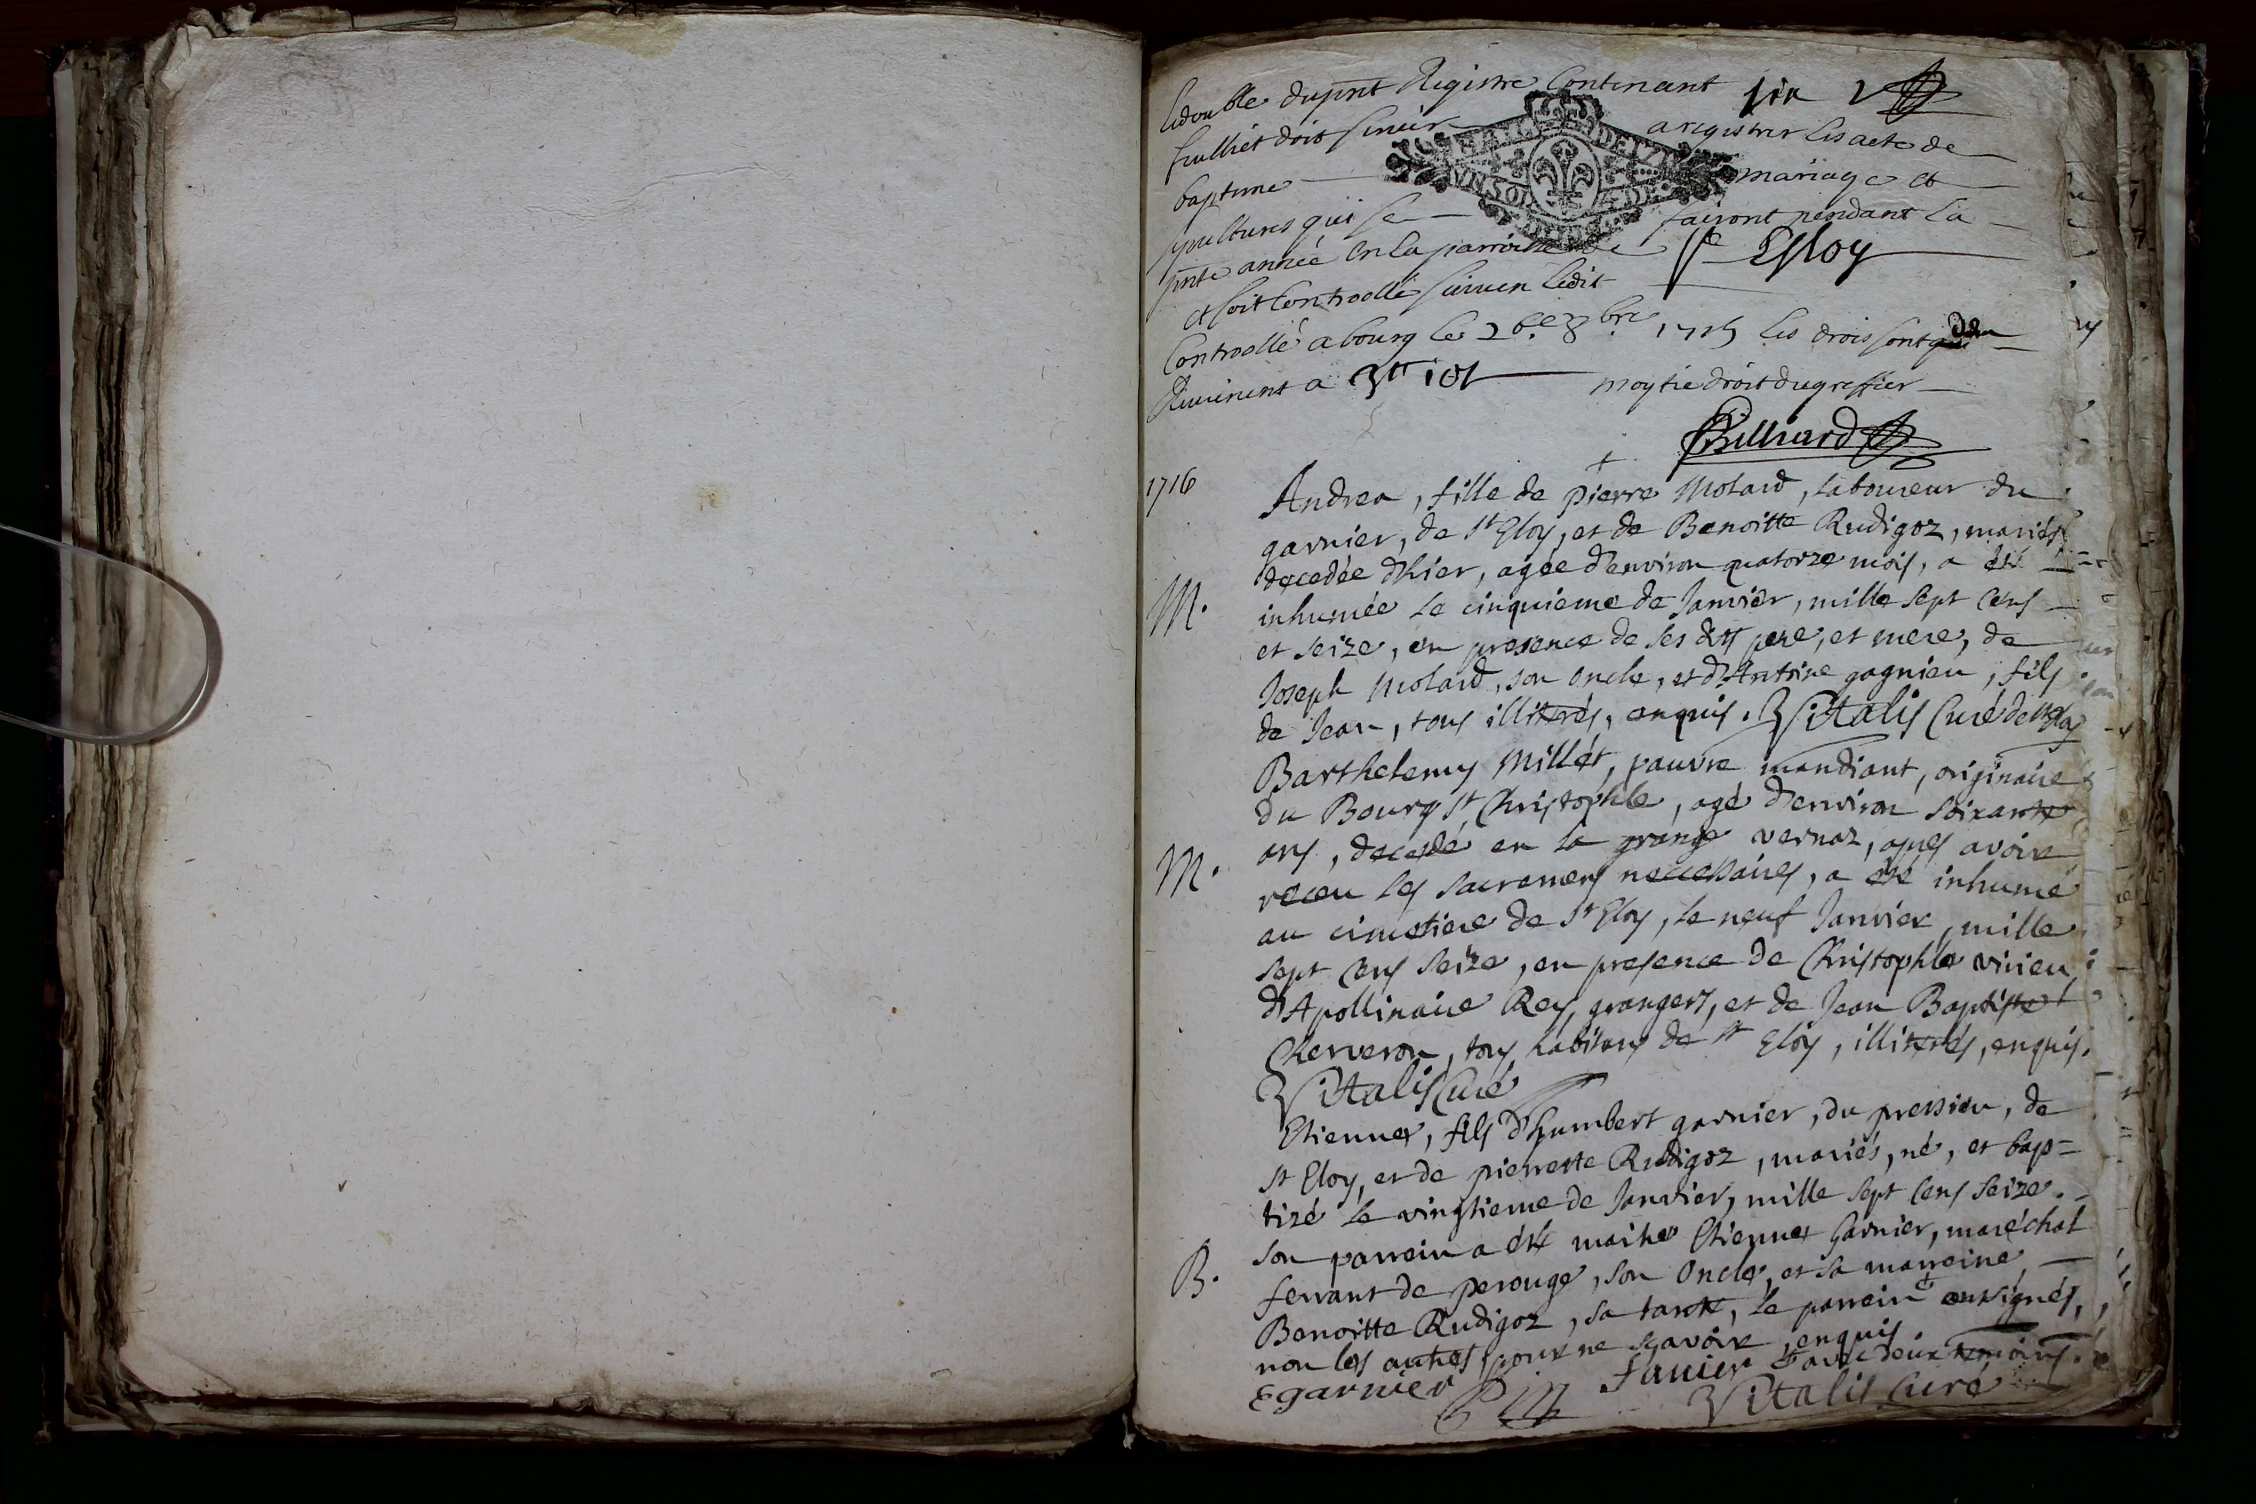 Le double du pnt Registre Contenant six
feulliet doit servir a registrer les acte de
bapteme mariage et
sepultures qui se fairont pendant la
pnte année En la parroisse de St Esloy
et soit Controollé suiven Ledit
Controollé a bourg le 26e 8bre 1715 les drois sont
Revienent a 3tt 10s moytie droit du greffier
Billiard
1716
Andrea, fille de pierre Molard, laboureur du
garnier, de st Eloy, et de Benoitte Rudigoz, mariés
decedée d'hier, agée d'environ quatorze mois, a été
M. inhumée le cinquieme de Janvier, mille sept cens
et seize, en presence de ses dits pere, et mere, de
Joseph Molard, son oncle, et d'Antoine gagnieu, fils
de Jean, tous illiterés, enquis. Vitalis Curé de st Eloy
Barthelemy Millét, pauvre mandiant, originaire
du Bourg st Christophle, agé d'environ soixante
M. ans, decedé en la grange vernaz, apres avoir
receu les sacremens neccessaires, a été inhumé
au cimetiere de st Eloy, le neuf Janvier, mille
sept cens seize, en presence de Christophle vivieu
d'Apollinaire Rey, grangers, et de Jean Baptiste
Cherveron, tous habitans de st Eloy, illiterés, enquis.
Vitalis Curé
Etienne, fils d'humbert garnier, du pression, de
st Eloy, et de pierrette Rudigoz, mariés, né, et bap=
tizé le vingtieme de Janvier, mille sept cens seize.
son parrein a été maitre Etienne Garnier, maréchal
B. ferrant de perouge, son Oncle, et sa marreine
Benoitte Rudigoz, sa tante, le parrein soussignés,
non les autres, pour ne sçavoir, enquis.
Egarnier Pin Janier avec deux temoins.
Vitalis curé